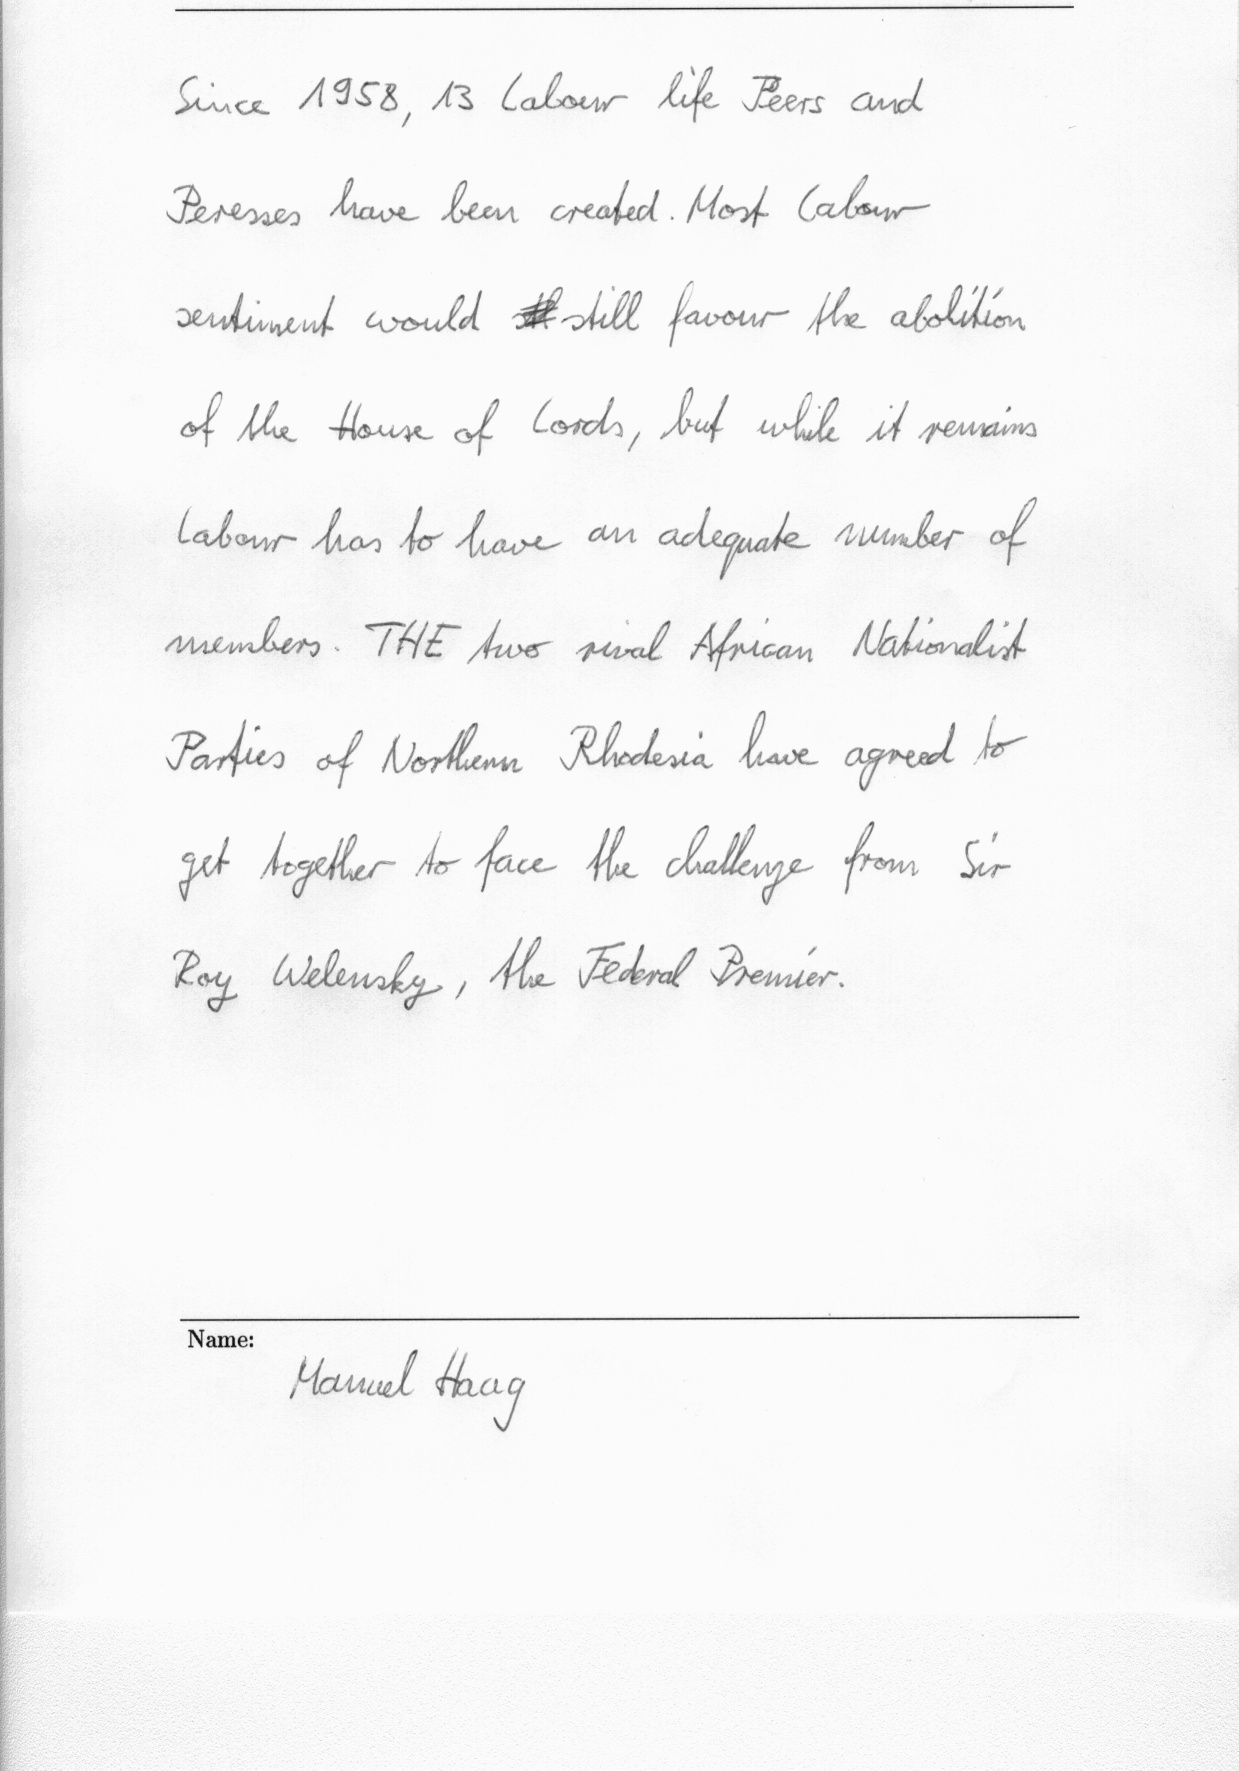 Since 1958, 13 Labour life Peers and
Peresses have been created. Most Labour
sentiment would still favour the abolition
of the House of Lords, but while it remains
Labour has to have an adequate number of
members. THE two rival African Nationalist
Parties of Northern Rhodesia have agreed to
get together to face the challenge from Sir
Roy Welensky, the Federal Premier.
Name:
Manuel Haag